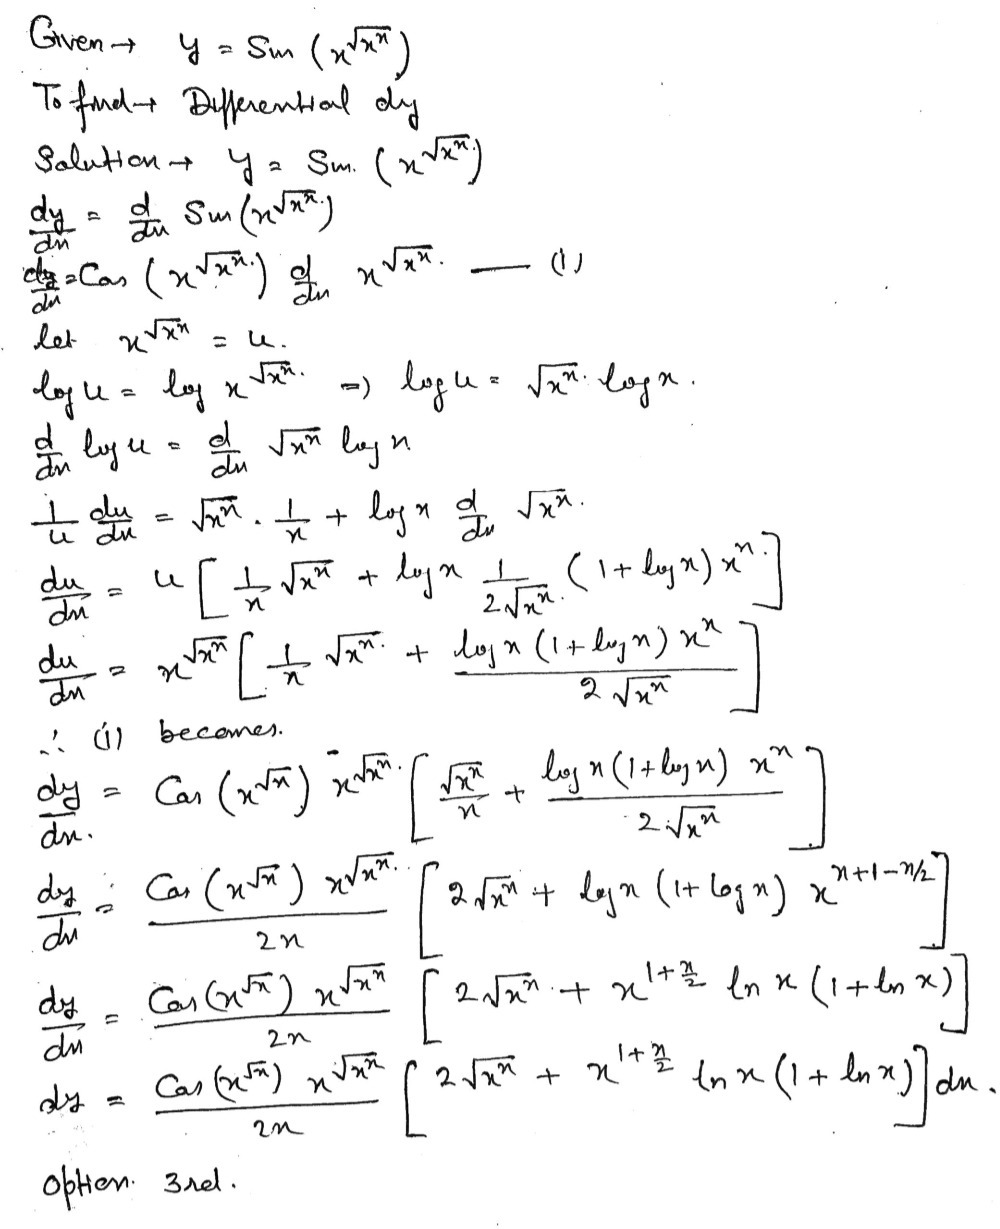 Given → y = Sin (x^√(x^x))
To find → Differential dy
Solution → y = Sin. (x^√(x^x))
dy/dx = d/dx Sin(x^√(x^x))
dy/dx = Cos (x^√(x^x)) d/dx x^√(x^x) — (1)
let x^√(x^x) = u.
log u = log x^√(x^x) ⇒ log u = √(x^x) log x.
d/dx log u = d/dx √(x^x) log x
1/u du/dx = √(x^x) . 1/x + log x d/dx √(x^x).
du/dx = u [ 1/x √(x^x) + log x 1/(2√(x^x)) (1 + log x) x^x ]
du/dx = x^√(x^x) [ 1/x √(x^x) + log x (1 + log x) x^x / (2√(x^x)) ]
∴ (1) becomes.
dy/dx. = Cos (x^√x) x^√(x^x) [ √(x^x)/x + log x (1 + log x) x^x / (2√(x^x)) ]
dy/dx = Cos (x^√x) x^√(x^x) / 2x [ 2√(x^x) + log x (1 + log x) x^(x+1-x/2) ]
dy/dx = Cos (x^√x) x^√(x^x) / 2x [ 2√(x^x) + x^(1+x/2) ln x (1 + ln x) ]
dy = Cos (x^√x) x^√(x^x) / 2x [ 2√(x^x) + x^(1+x/2) ln x (1 + ln x) ] dx.
Option. 3rd.